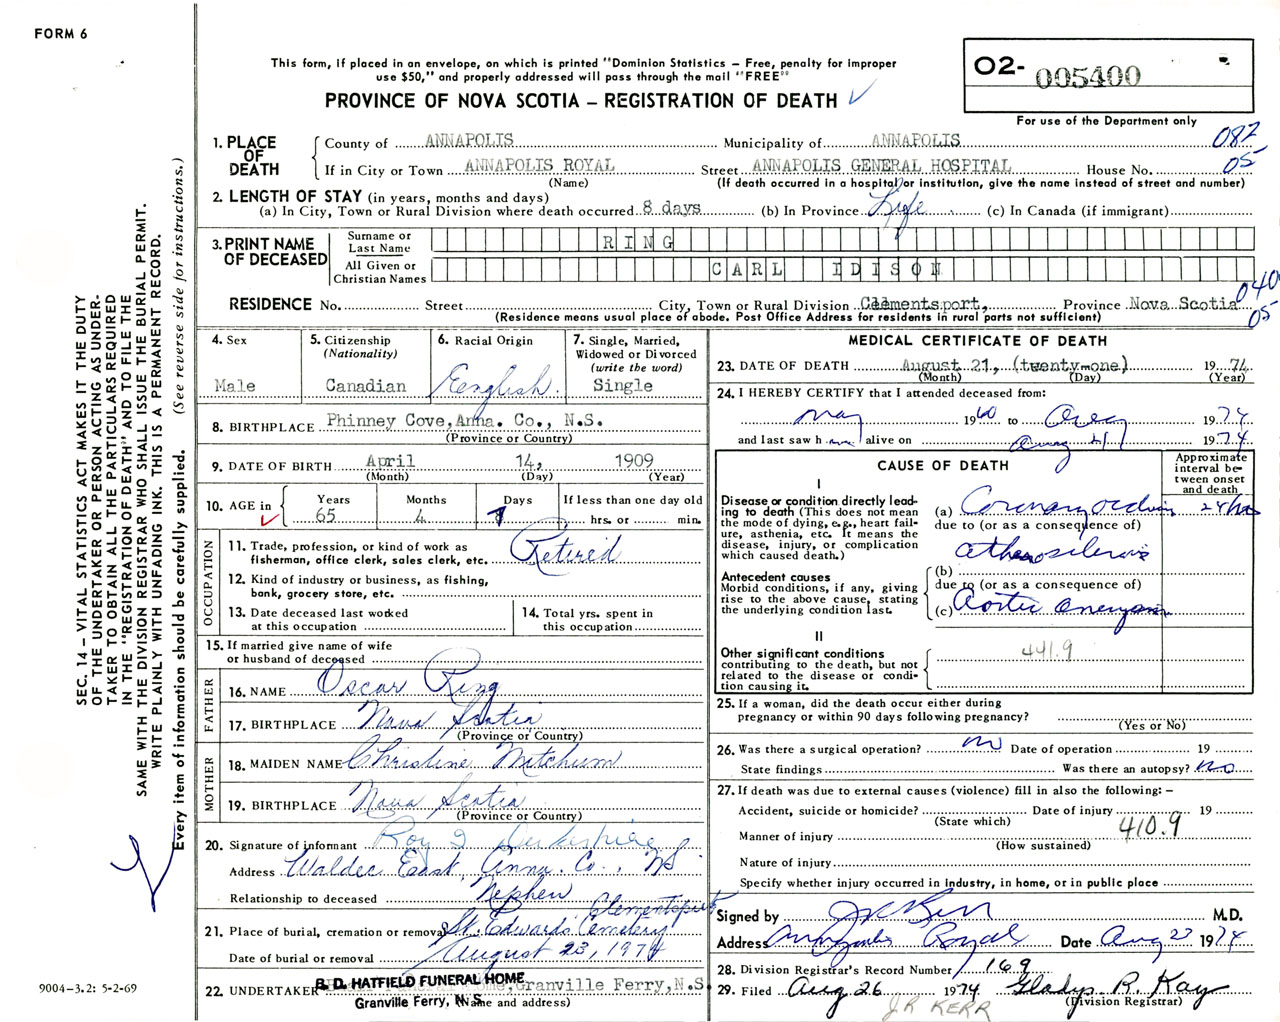 FORM 6
This form, if placed in an envelope, on which is printed "Dominion Statistics – Free, penalty for improper
use $50," and properly addressed will pass through the mail "FREE"
PROVINCE OF NOVA SCOTIA – REGISTRATION OF DEATH
O2- 005400
For use of the Department only
082
05
1. PLACE OF DEATH
County of ANNAPOLIS Municipality of ANNAPOLIS
If in City or Town ANNAPOLIS ROYAL Street ANNAPOLIS GENERAL HOSPITAL House No.
(Name) (If death occurred in a hospital or institution, give the name instead of street and number)
2. LENGTH OF STAY (in years, months and days)
(a) In City, Town or Rural Division where death occurred 8 days (b) In Province Life (c) In Canada (if immigrant)
3. PRINT NAME OF DECEASED
Surname or Last Name RING
All Given or Christian Names CARL IDISON
040
05
RESIDENCE No. Street City, Town or Rural Division Clementsport, Province Nova Scotia
(Residence means usual place of abode. Post Office Address for residents in rural parts not sufficient)
4. Sex
Male
5. Citizenship
(Nationality)
Canadian
6. Racial Origin
English.
7. Single, Married,
Widowed or Divorced
(write the word)
Single
8. BIRTHPLACE Phinney Cove, Anna. Co., N.S.
(Province or Country)
9. DATE OF BIRTH April 14, 1909
(Month) (Day) (Year)
10. AGE in
Years Months Days If less than one day old
65 4 7 hrs. or min.
OCCUPATION
11. Trade, profession, or kind of work as
fisherman, office clerk, sales clerk, etc. Retired
12. Kind of industry or business, as fishing,
bank, grocery store, etc.
13. Date deceased last worked
at this occupation
14. Total yrs. spent in
this occupation
15. If married give name of wife
or husband of deceased
FATHER
16. NAME Oscar Ring
17. BIRTHPLACE Nova Scotia
(Province or Country)
MOTHER
18. MAIDEN NAME Christine Mitchum
19. BIRTHPLACE Nova Scotia
(Province or Country)
20. Signature of informant Roy
Address Waldec East, Anna. Co., NS
Relationship to deceased Nephew
21. Place of burial, cremation or removal St. Edwards Cemetery Clementsport
Date of burial or removal August 23, 1974
22. UNDERTAKER B. D. HATFIELD FUNERAL HOME Granville Ferry, N.S.
Granville Ferry, N.S.
(Name and address)
MEDICAL CERTIFICATE OF DEATH
23. DATE OF DEATH August 21, (twenty-one) 1974
(Month) (Day) (Year)
24. I HEREBY CERTIFY that I attended deceased from:
May 1960 to Aug 1974
and last saw h alive on Aug 21 1974
CAUSE OF DEATH
Approximate
interval be-
tween onset
and death
I
Disease or condition directly lead-
ing to death (This does not mean
the mode of dying, e.g., heart fail-
ure, asthenia, etc. It means the
disease, injury, or complication
which caused death.)
(a) Coronary 24 hrs
due to (or as a consequence of)
Antecedent causes
Morbid conditions, if any, giving
rise to the above cause, stating
the underlying condition last.
(b)
due to (or as a consequence of)
(c) Aortic aneurysm
II
Other significant conditions
contributing to the death, but not
related to the disease or condi-
tion causing it.
441.9
25. If a woman, did the death occur either during
pregnancy or within 90 days following pregnancy?
(Yes or No)
26. Was there a surgical operation? no Date of operation 19
State findings Was there an autopsy? no
27. If death was due to external causes (violence) fill in also the following: –
Accident, suicide or homicide? Date of injury 19
(State which)
Manner of injury 410.9
(How sustained)
Nature of injury
Specify whether injury occurred in industry, in home, or in public place
Signed by J R Kerr M.D.
Address Annapolis Royal Date Aug 23 1974
28. Division Registrar's Record Number 169
29. Filed Aug 26 1974 Gladys R. Kay
(Division Registrar)
J.R KERR
SEC. 14 – VITAL STATISTICS ACT MAKES IT THE DUTY
OF THE UNDERTAKER OR PERSON ACTING AS UNDER-
TAKER TO OBTAIN ALL THE PARTICULARS REQUIRED
IN THE "REGISTRATION OF DEATH" AND TO FILE THE
SAME WITH THE DIVISION REGISTRAR WHO SHALL ISSUE THE BURIAL PERMIT.
WRITE PLAINLY WITH UNFADING INK. THIS IS A PERMANENT RECORD.
Every item of information should be carefully supplied. (See reverse side for instructions.)
9004-3.2: 5-2-69